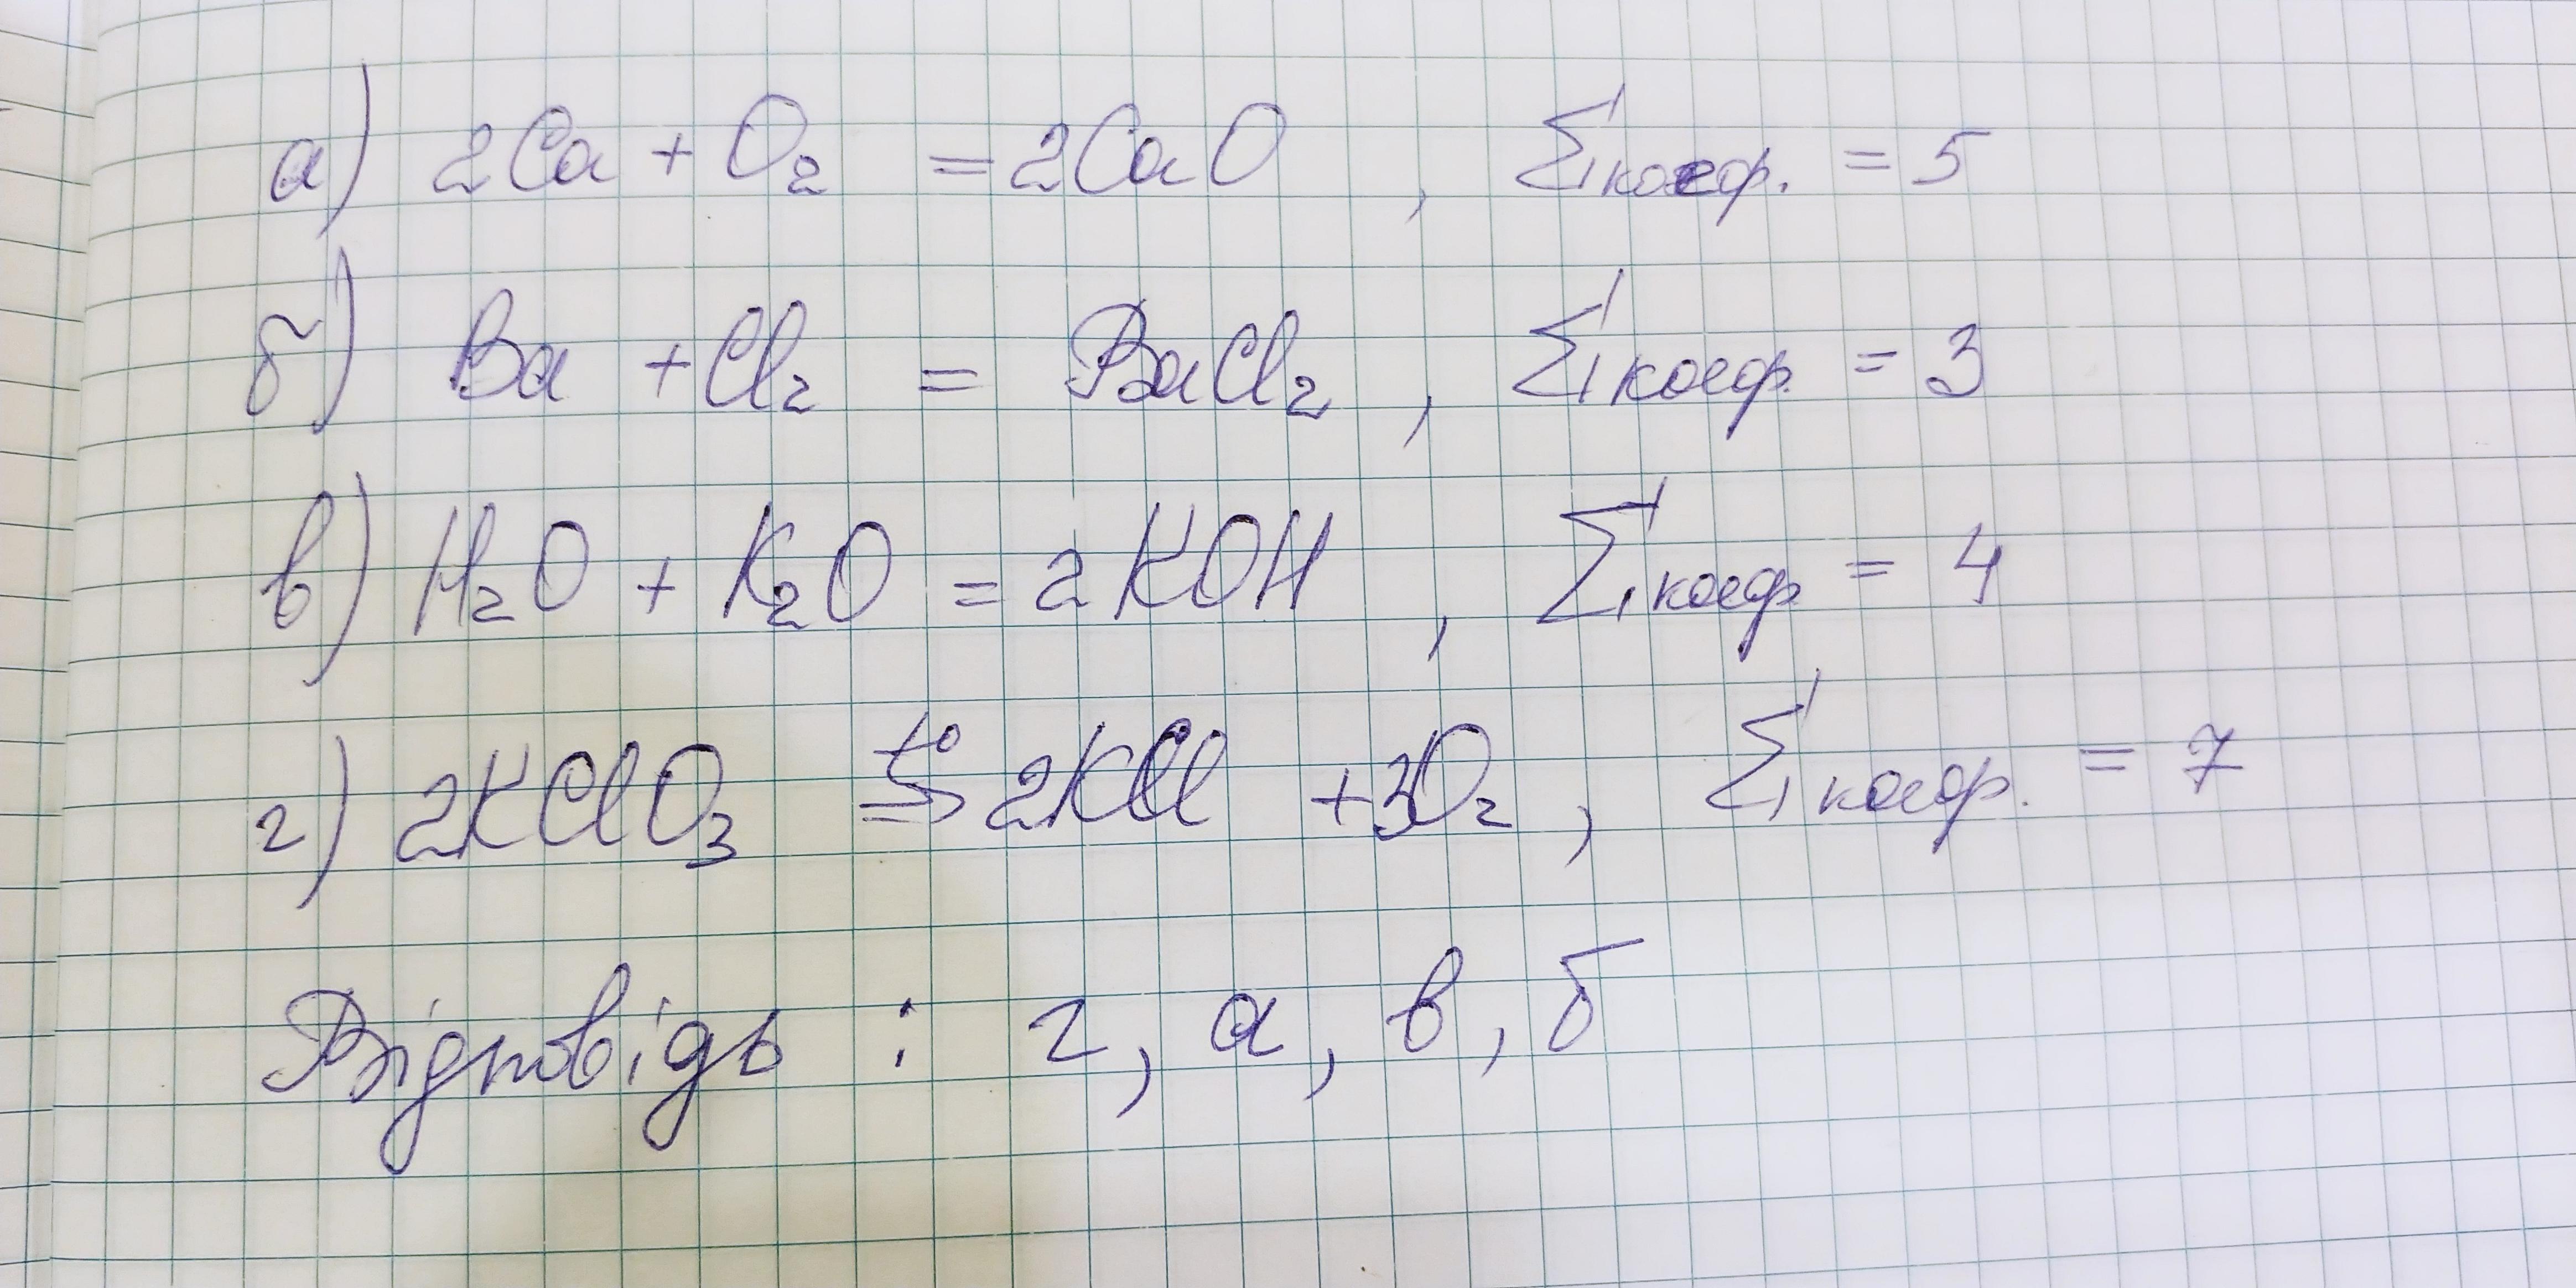 а) 2Ca + O₂ = 2CaO , Σкоеф. = 5
б) Ba + Cl₂ = BaCl₂ , Σкоеф. = 3
в) H₂O + K₂O = 2KOH , Σкоеф = 4
г) 2KClO₃ =t°=> 2KCl + 3O₂ , Σкоеф. = 7
Відповідь : г, а, в, б